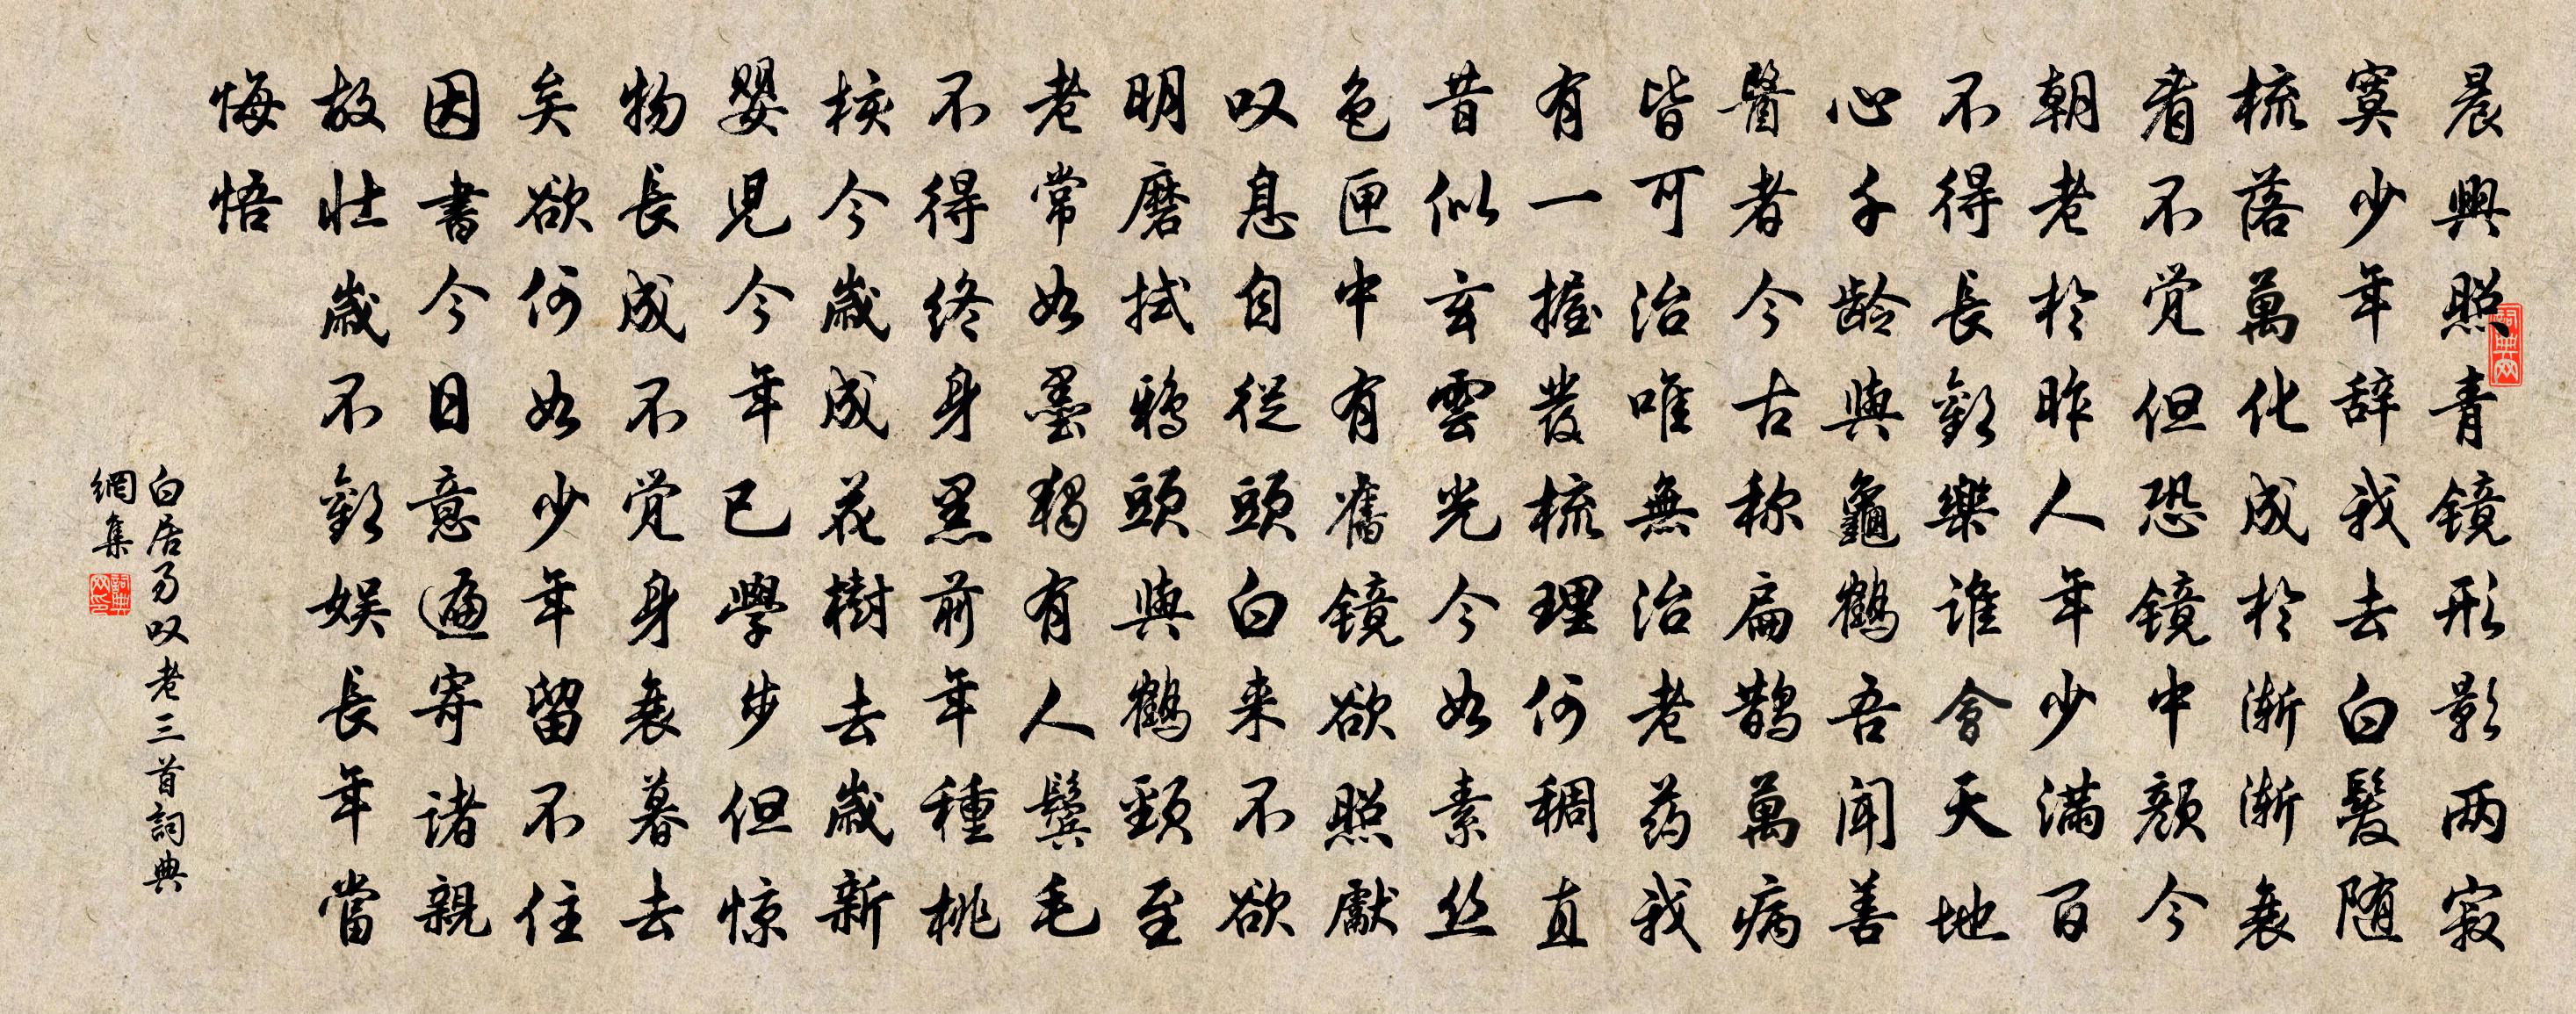 晨興照青镜形影两寂
寞少年辞我去白髮随
梳落萬化成於渐渐衰
看不觉但恐镜中颜今
朝老於昨人年少满百
不得長歡樂谁會天地
心千龄與龜鶴吾闻善
醫者今古称扁鹊萬病
皆可治唯無治老药我
有一握發梳理何稠直
昔似玄雲光今如素丝
色匣中有舊镜欲照獻
叹息自從頭白来不欲
明磨拭鴉頭與鶴頸至
老常如墨独有人鬓毛
不得终身黑前年種桃
核今歲成花樹去歲新
嬰兒今年已學步但惊
物長成不觉身衰暮去
矣欲何如少年留不住
因書今日意遍寄诸親
故壮歲不歡娱長年當
悔悟
白居易叹老三首詞典
網集
詞典网
詞典网印